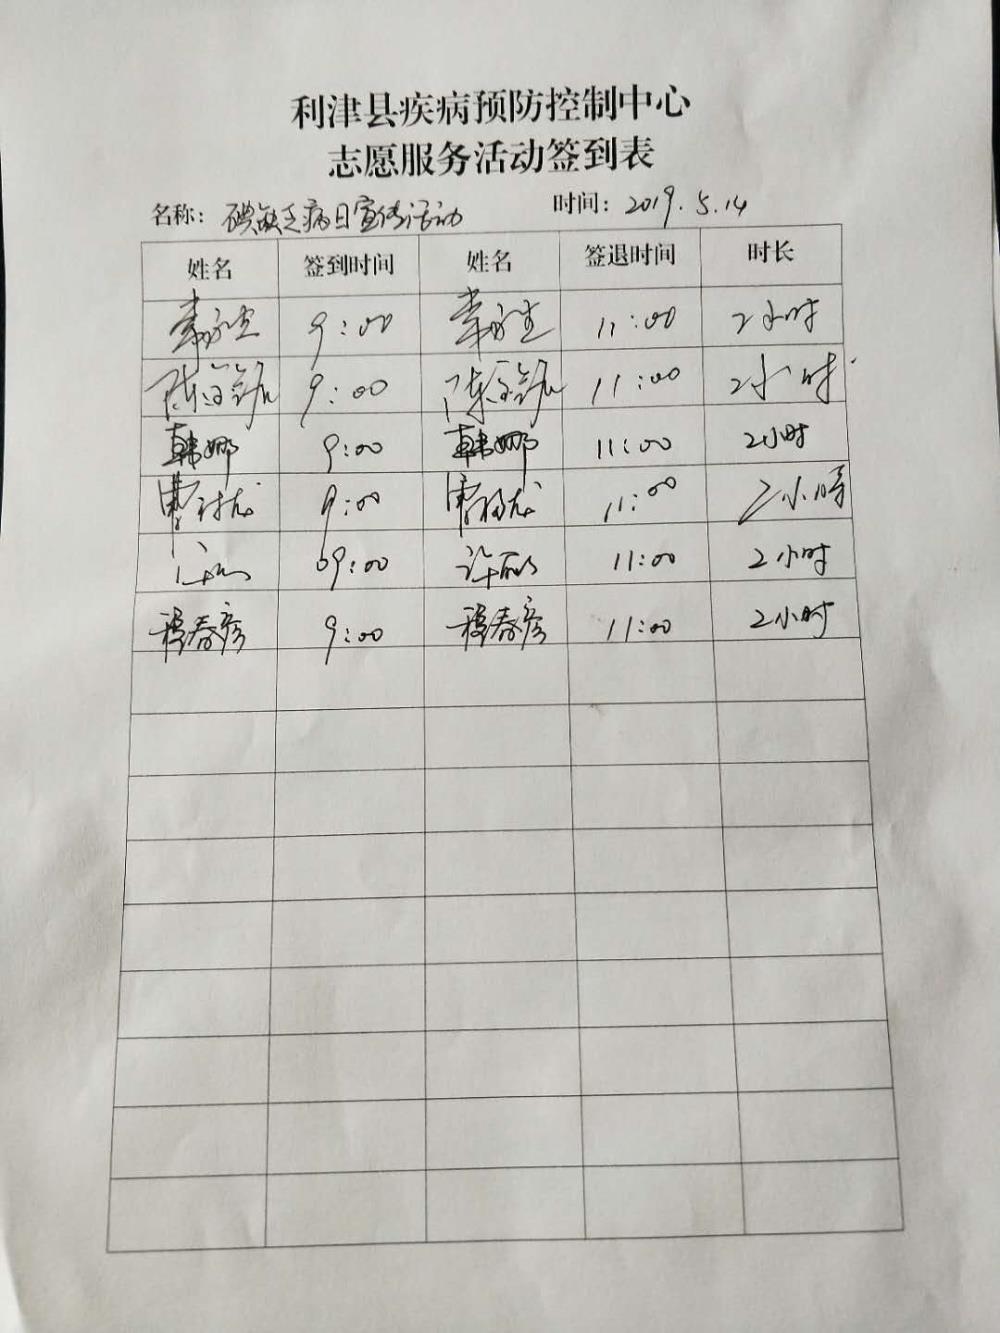 利津县疾病预防控制中心
志愿服务活动签到表
名称：碘缺乏病日宣传活动 时间：2019.5.14
姓名 签到时间 姓名 签退时间 时长
9:00 11:00 2小时
陈 9:00 陈 11:00 2小时
韩娜 9:00 韩娜 11:00 2小时
曹 9:00 曹 11:00 2小时
09:00 许丽 11:00 2小时
程春彦 9:00 程春彦 11:00 2小时